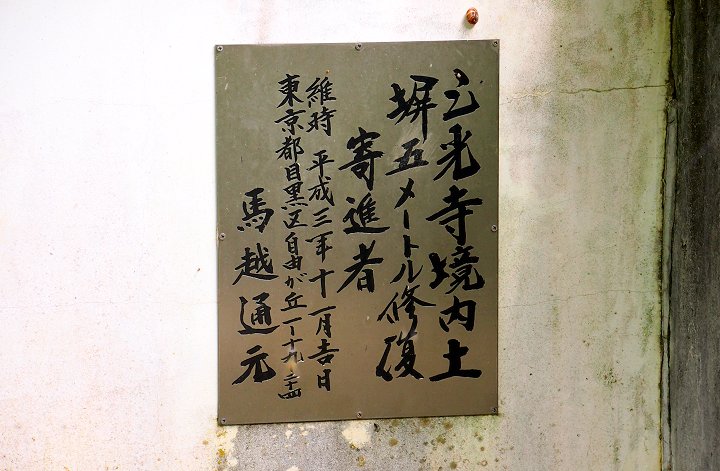 立光寺境内土
塀五メートル修復
寄進者
維時 平成三年十一月吉日
東京都目黒区自由が丘一ー十九ー二十四
馬越通元